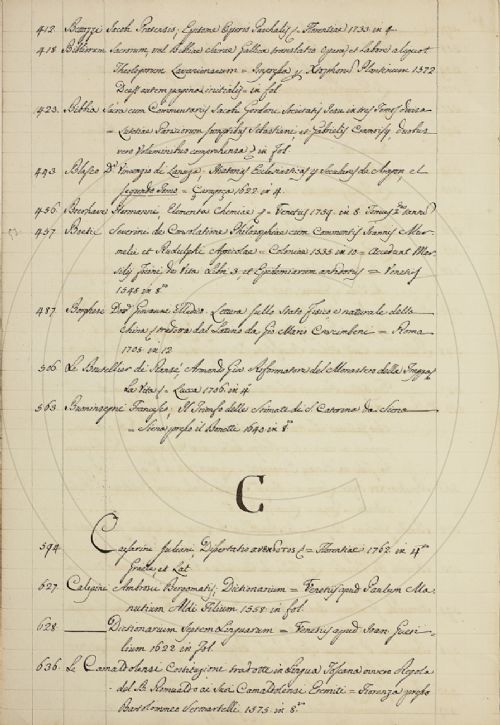 412. Jacob Pratensis; Epitome Operis Paschalis = Florentiae 1733 in 4.
418 Bibliorum Sacrorum, vul. Biblicae Sacrae Gallica translatio opera, et Labore aliquot
Theologorum Lovaniensium = Antverpiae Plantinum 1572
in fol.
423. Biblia Sacra cum Commentariis Jacobi Gordoni Societatis Jesu in tres Tomos divisa
= Lutetiae Parisiorum Sebastiani, et Gabrielis Cramoisy, duobus
vero Voluminibus comprehensa in fol.
443. Blasco Dn. Vincenzio de Lanuza, Historias Ecclesiasticas y Seculares de Aragon, el
segundo Tomo = Çaragoça 1622 in 4.
456 Boerhave Hermanni, Elementa Chemiae = Venetiis 1759. in 8.
457. Boetii Severini de Consolatione Philosophiae cum Commentis Joannis Mur-
melii et Rudulphi Agricolae = Coloniae 1535 in 10 = Accedunt Mar-
silij Ficini de Vita Libri 3, et Epidemiarum antidotus = Venetiis
1548 in 8.
487. Borghese Giovanne Lettera sullo Stato fisico e naturale della
China tradotta dal Latino da Gio Mario Crescimbeni = Roma
1705 in 12
506. Le Bouthillier de Ransé, Armando Gio Reformatore del Monastero della Trappa
La Vita = Lucca 1706 in 4
563. Buoninsegni Francesco; Il Trionfo delle Stimate di S Caterina da Siena
= Siena presso il Bonetti 1640 in 8.
C
594. Caesarini Juliani; Dissertatio = Florentiae 1762. in 4.
Graece et Lat.
627. Calepini Ambrosii Bergomatis; Dictionarium = Venetiis apud Paulum Ma-
nutium Aldi Filium 1558 in fol.
628. Dictionarium Septem Linguarum = Venetiis apud Joan Gueri-
lium 1622 in fol.
636. Le Camaldolensi Costituzione tradotte in Lingua Toscana ovvero Regola
del B. Romualdo ai Suoi Camaldolensi Eremiti = Fiorenza presso
Bartolommeo Sermartelli 1575 in 8.